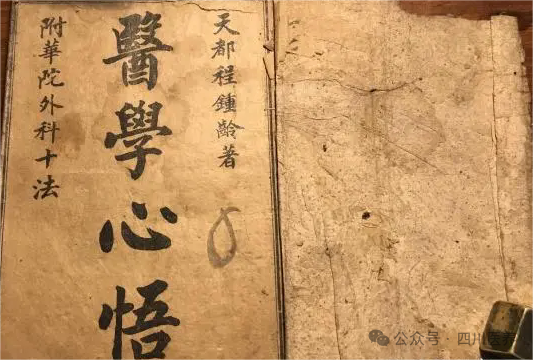 天都程鍾齡著
醫學心悟
附華陀外科十法
公众号·四川